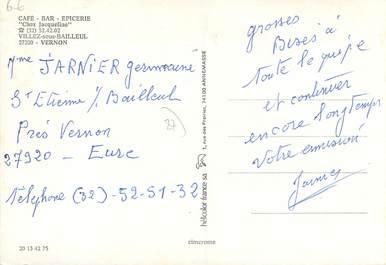 6-6
CAFÉ - BAR - EPICERIE
"Chez Jacqueline"
☎ (32) 52.42.02
VILLEZ-sous-BAILLEUL
27920 - VERNON
Mme JARNIER germaine
St Etienne s/ Bailleul
Près Vernon
27920 - Eure
téléphone (32) -52-51-32
27
grosses
Bises à
toute l'equipe
et continuer
encore longtemps
votre emission
hélicolor france sa
1, rue des Prairies, 74100 ANNEMASSE
20 13 42 75
cimcrome